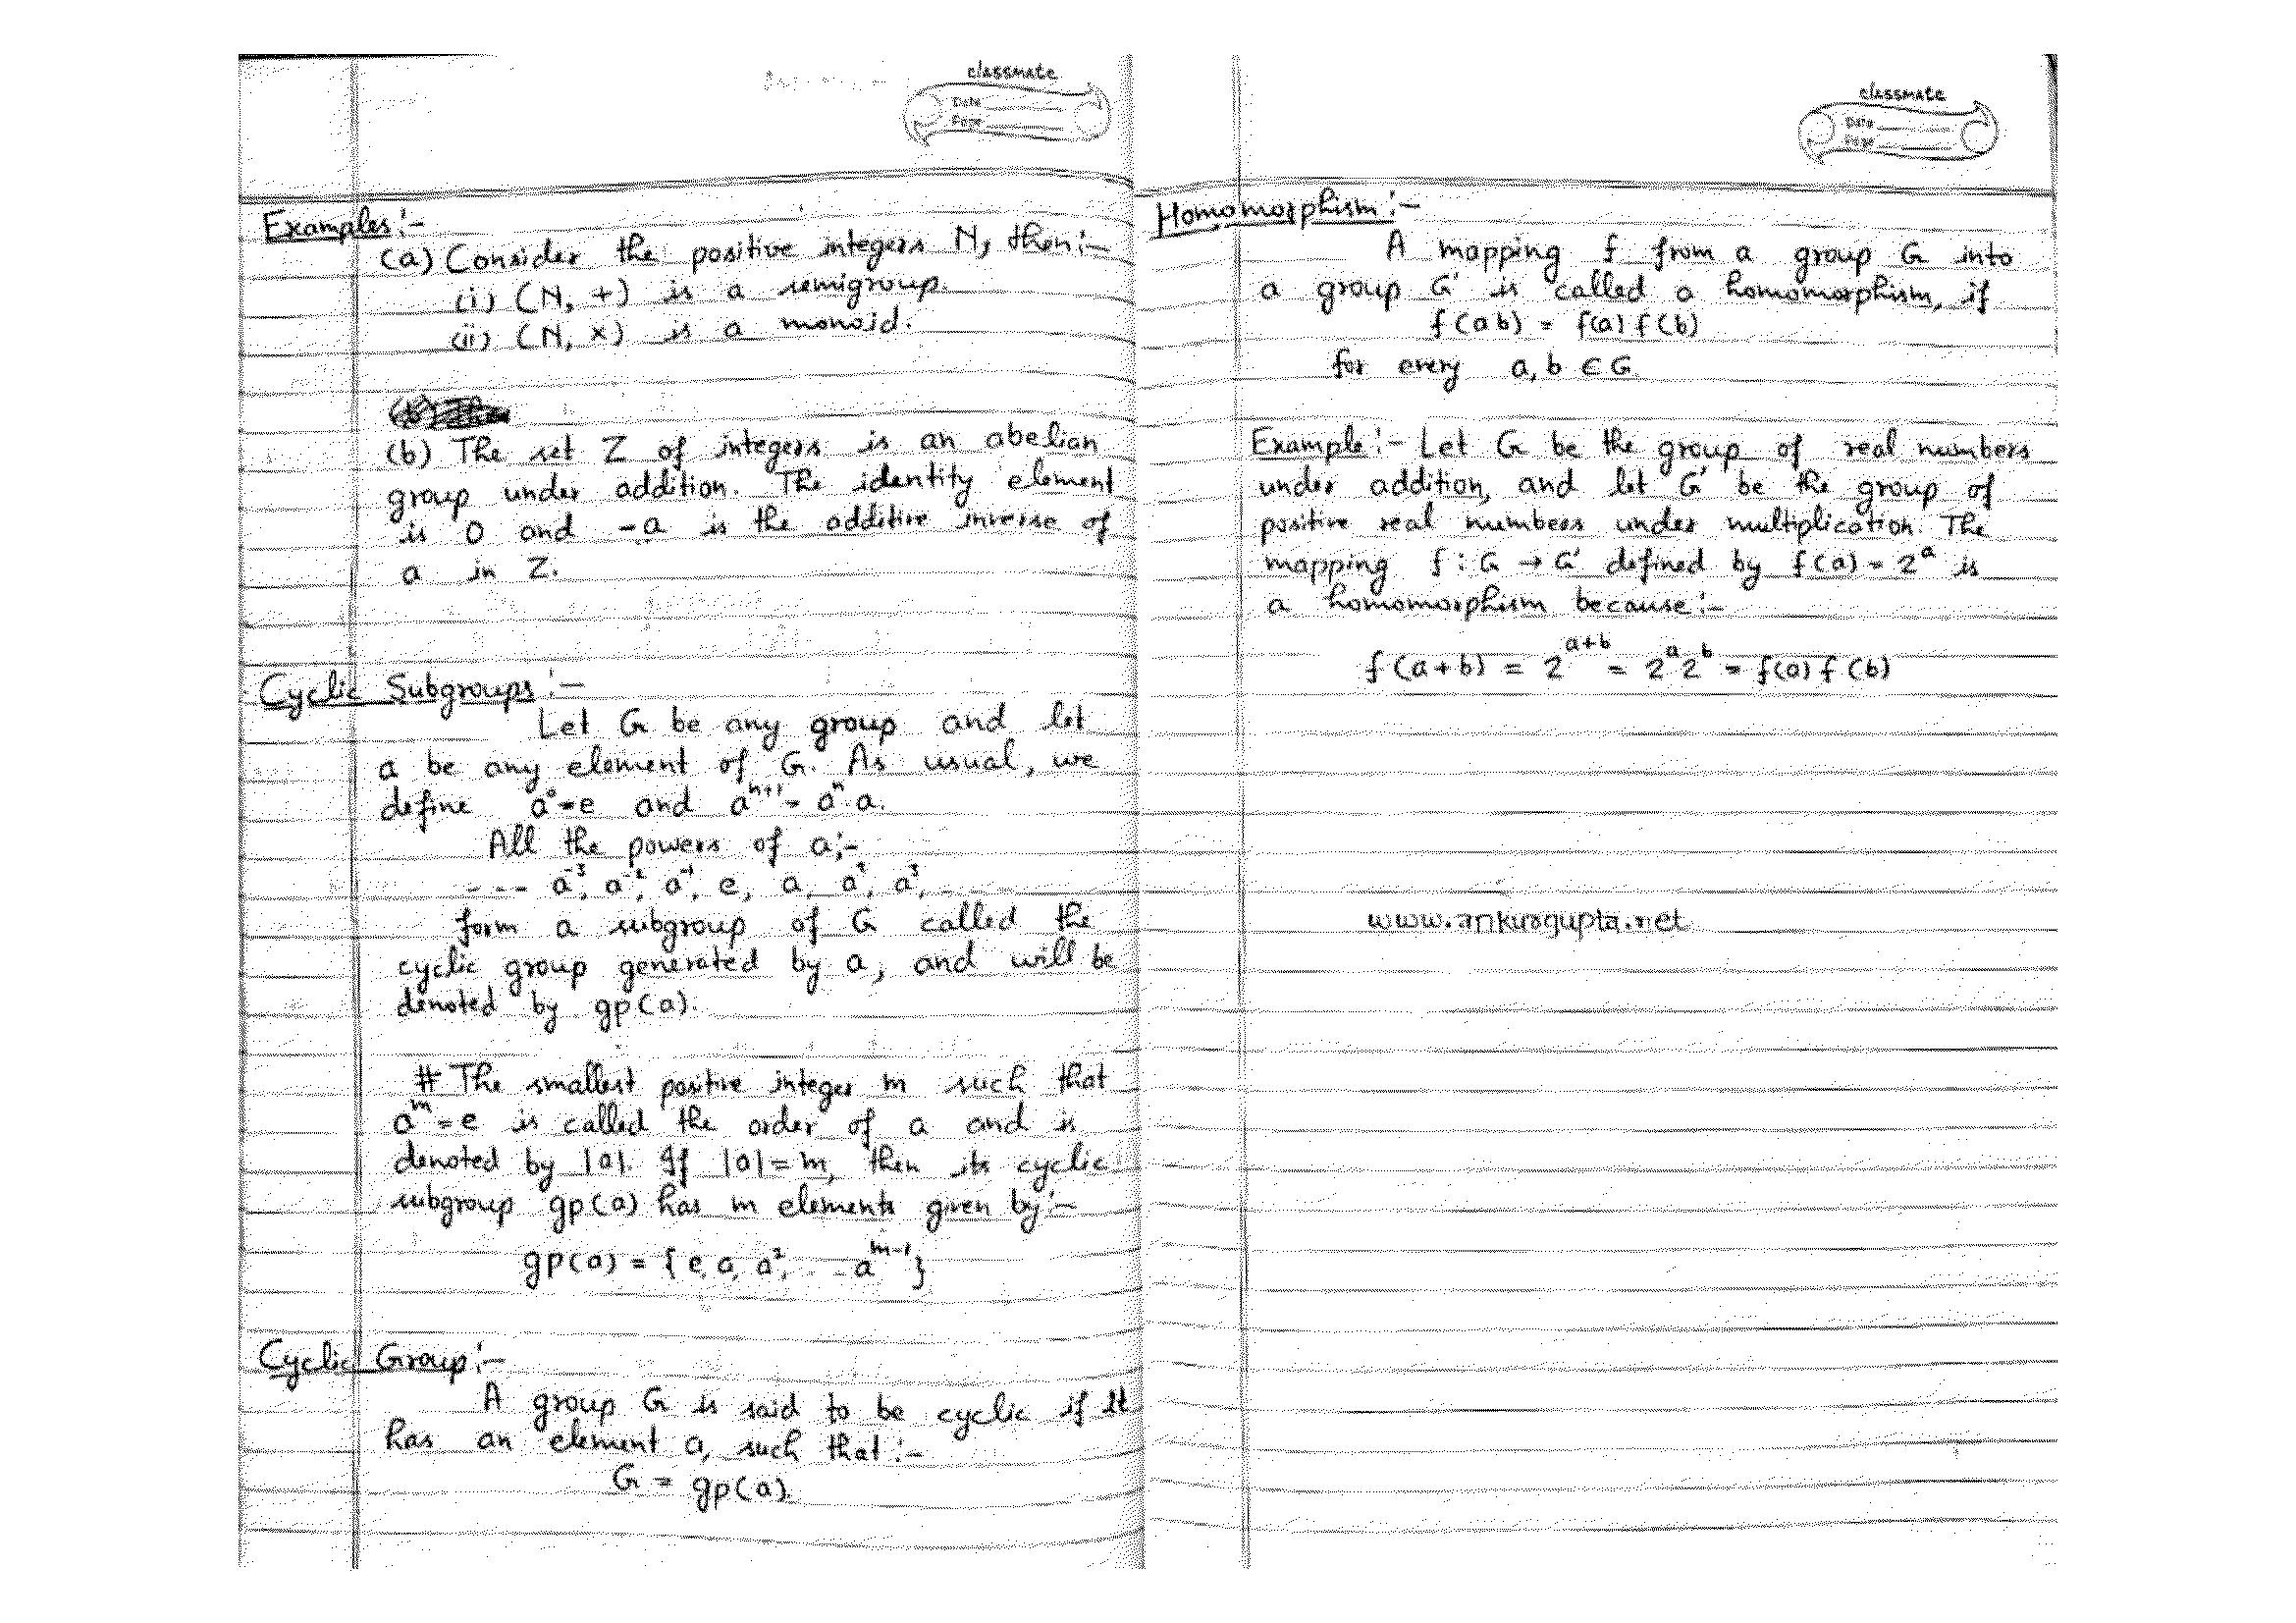 classmate
Date
Page
Examples:-
(a) Consider the positive integers N, then:-
(i) (N, +) is a semigroup.
(ii) (N, ×) is a monoid.
(b) The set Z of integers is an abelian
group under addition. The identity element
is 0 and -a is the additive inverse of
a in Z.
Cyclic Subgroups:-
Let G be any group and let
a be any element of G. As usual, we
define a⁰=e and aⁿ⁺¹= aⁿ.a.
All the powers of a:-
---- a⁻³, a⁻², a⁻¹, e, a, a², a³, ----
form a subgroup of G called the
cyclic group generated by a, and will be
denoted by gp(a).
# The smallest positive integer m such that
aᵐ=e is called the order of a and is
denoted by |a|. If |a|=m, then its cyclic
subgroup gp(a) has m elements given by:-
gp(a) = {e, a, a², ... aᵐ⁻¹}
Cyclic Group:-
A group G is said to be cyclic if it
has an element a, such that:-
G = gp(a).
classmate
Date
Page
Homomorphism:-
A mapping f from a group G into
a group G' is called a homomorphism, if
f(ab) = f(a) f(b)
for every a, b ∈ G.
Example:- Let G be the group of real numbers
under addition, and let G' be the group of
positive real numbers under multiplication. The
mapping f : G → G' defined by f(a) = 2ᵃ is
a homomorphism because:-
f(a+b) = 2ᵃ⁺ᵇ = 2ᵃ2ᵇ = f(a) f(b)
www.ankurgupta.net